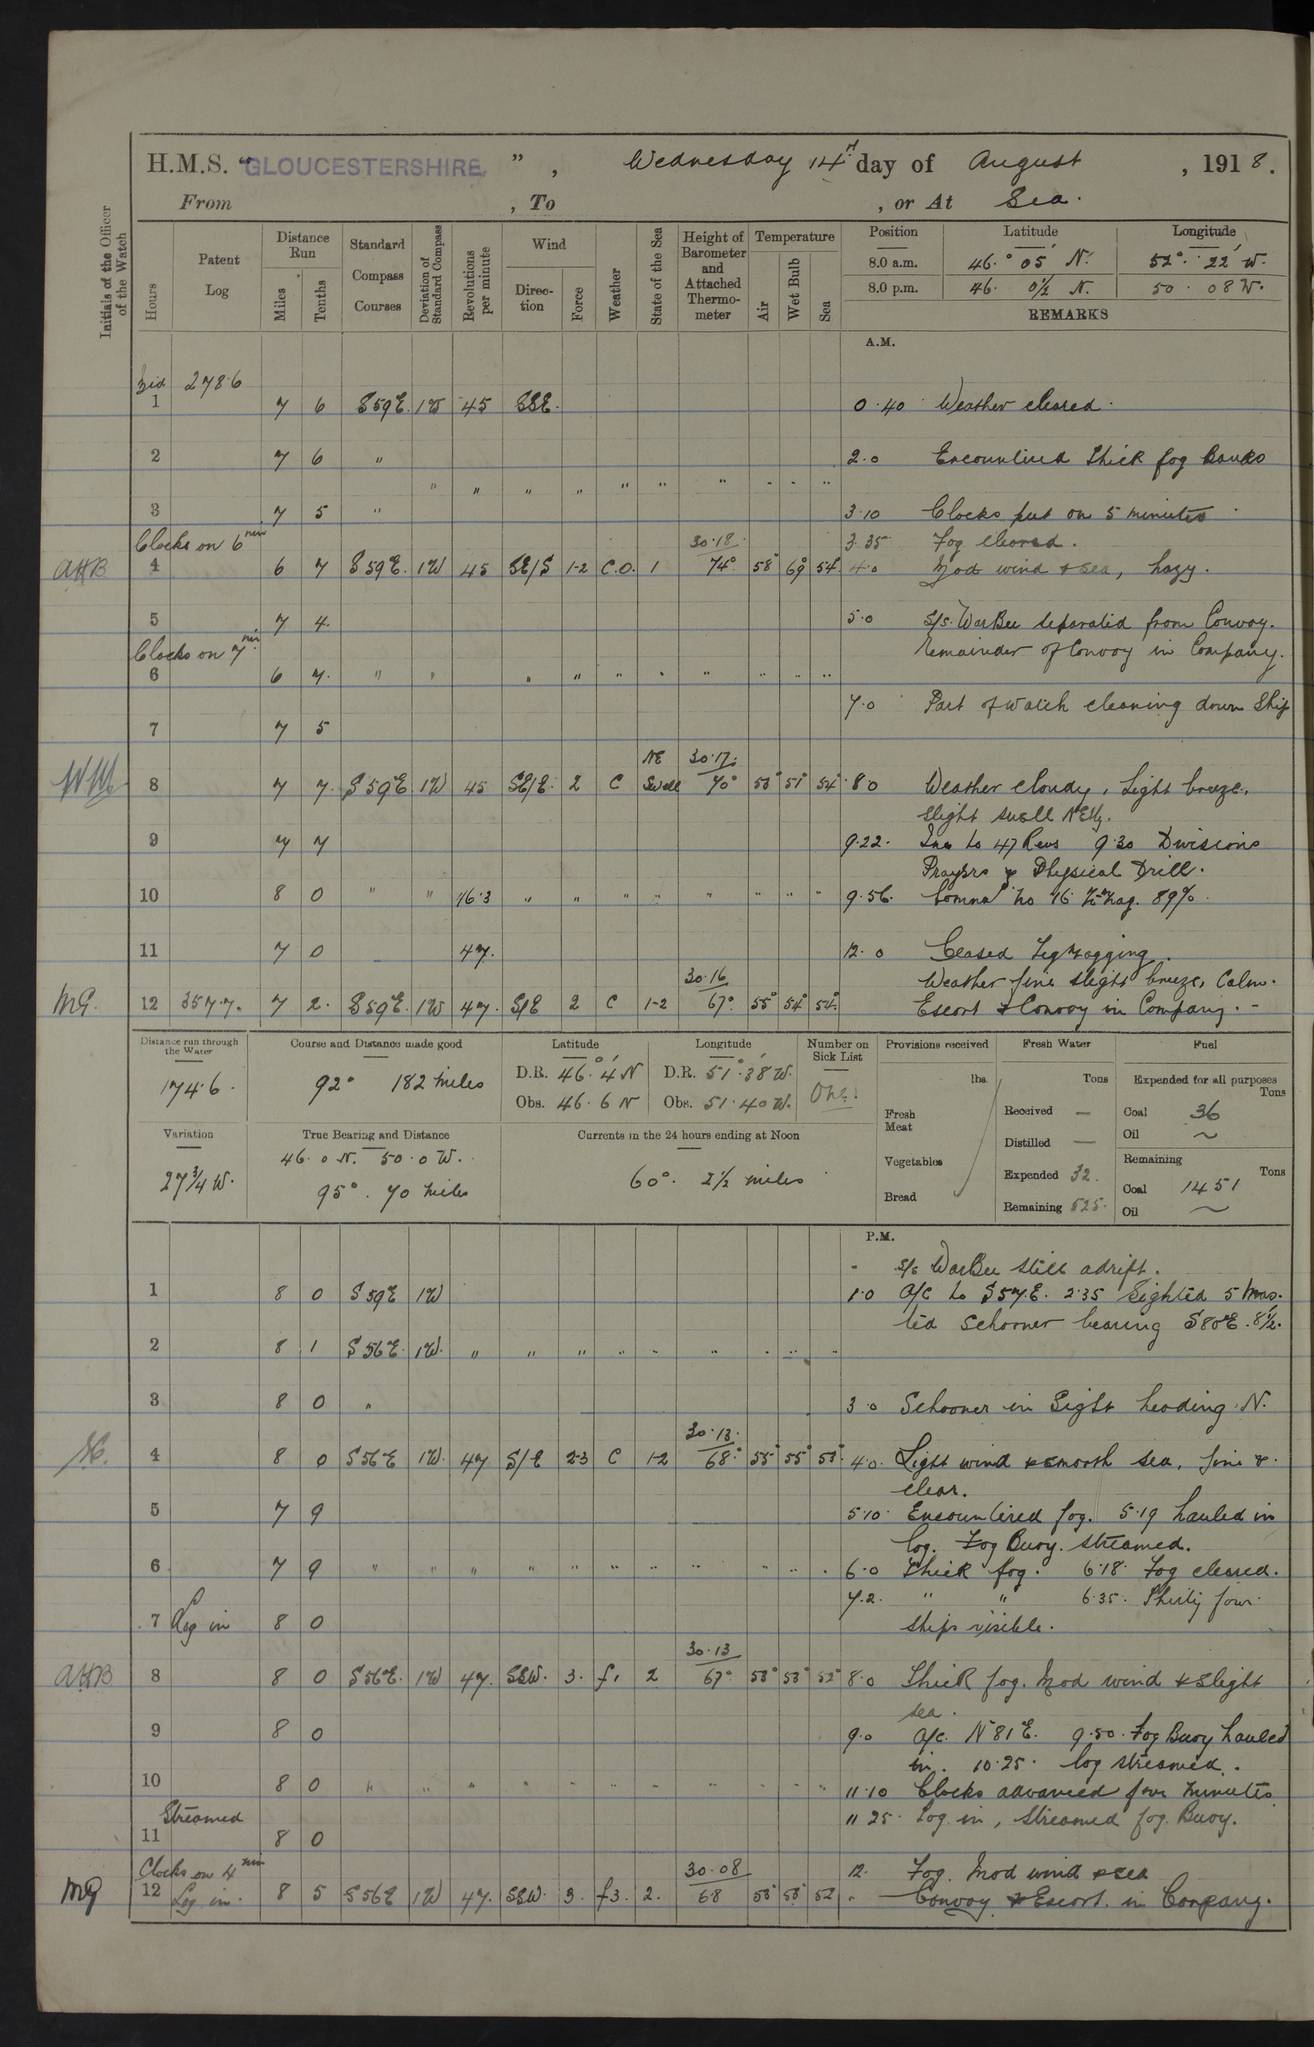 H.M.S. "GLOUCESTERSHIRE", Wednesday 14th day of August, 1918.
From , To , or At Sea.
Initials of the Officer of the Watch
Hours
Patent Log
Distance Run
Miles
Tenths
Standard Compass Courses
Deviation of Standard Compass
Revolutions per minute
Wind
Direction
Force
Weather
State of the Sea
Height of Barometer and Attached Thermometer
Temperature
Air
Wet Bulb
Sea
Position Latitude Longitude
8.0 a.m. 46.° 05' N. 52°. 22' W.
8.0 p.m. 46. 0½ N. 50. 08 W.
REMARKS
A.M.
278.6
1 7 6 S59E. 1W 45 SSE. 0.40 Weather cleared.
2 7 6 " 2.0 Encountered thick fog banks
" " " " " " " " " "
3 7 5 " 3.10 Clocks put on 5 minutes
Clocks on 6 min 30.18 3.35 Fog cleared.
AHB 4 6 7 S59E. 1W 45 SE/S 1-2 C.O. 1 74° 58° 54° 4.0 Mod wind & sea, hazy.
5 7 4. 5.0 S/S. WarBee separated from Convoy.
Clocks on 7 min. Remainder of Convoy in Company.
6 6 7. " " " " " " " " " "
7.0 Part of watch cleaning down Ship
7 7 5
NE 30.17.
8 7 7. S59E. 1W 45 SE/E. 2 C Swell 70° 53° 51° 54° 8.0 Weather cloudy, Light breeze,
slight swell NEly.
9 7 7 9.22. Inc to 47 Revs 9.30 Divisions
Prayers & Physical Drill.
10 8 0 " " 46.3 " " " " " " " " 9.56. 89%
11 7 0 47. 12.0 Ceased Zigzagging.
30.16 Weather fine slight breeze, Calm.
MG. 12 357.7. 7 2. S59E. 1W 47. S/E 2 C 1-2 67° 55° 54° 54°. Escort & Convoy in Company. -
Distance run through the Water
174.6.
Course and Distance made good
92° 182 miles
Latitude
D.R. 46.° 4' N
Obs. 46. 6 N
Longitude
D.R. 51°. 38' W.
Obs. 51. 40 W.
Number on Sick List
One.
Provisions received
lbs.
Fresh Meat
Vegetables
Bread
Fresh Water
Tons
Received —
Distilled —
Expended 32.
Remaining 525.
Fuel
Expended for all purposes
Tons
Coal 36
Oil ~
Remaining
Tons
Coal 1451
Oil ~
Variation
27¾ W.
True Bearing and Distance
46. 0 N. 50. 0 W.
95°. 70 miles
Currents in the 24 hours ending at Noon
60°. 2½ miles
P.M.
S/S WarBee still adrift.
1 8 0 S59E 1W 1.0 A/C to S57E. 2.35 Sighted 5 mas-
ted schooner bearing S80E. 8½.
2 8 1 S56E. 1W. " " " " " " " " "
3 8 0 " 3.0 Schooner in Sight heading N.
30.13.
4 8 0 S56E 1W. 47 S/E 2-3 C 1-2 68.° 55° 55° 53° 4.0. Light wind & smooth sea, fine &
clear.
5 7 9 5.10. Encountered fog. 5.19 hauled in
log. Fog Buoy. streamed.
6 7 9 " " " " " " " " " " " 6.0 Thick fog. 6.18. Fog cleared.
7.2. " " 6.35. Thirty four
7 Log in 8 0 ships visible.
30.13
AHB 8 8 0 S56E. 1W 47. SSW. 3. f. 2 67° 53° 53° 52° 8.0 Thick fog. Mod wind & slight
sea.
9 8 0 9.0 A/c. N81E. 9.50. Fog Buoy hauled
in. 10.25. log streamed.
10 8 0 " " " " " " " " " " " 11.10 Clocks advanced four minutes.
Streamed 11.25. Log in, streamed fog Buoy.
11 8 0
Clocks on 4 min 30.08 12. Fog. Mod wind & sea
MG 12 Log in. 8 5 S56E 1W 47. SSW. 3. f3. 2. 68 53° 53° 52 " Convoy & Escort in Company.